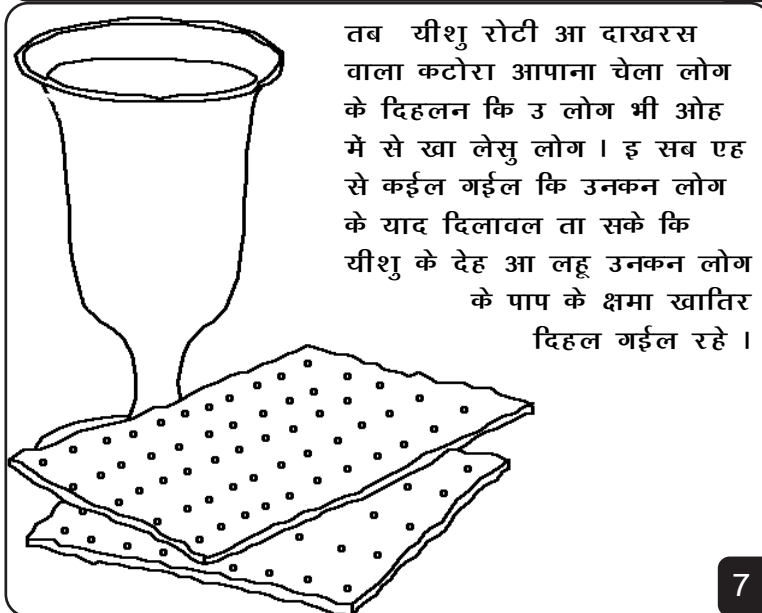 तब यीशु रोटी आ दाखरस
वाला कटोरा आपाना चेला लोग
के दिहलन कि उ लोग भी ओह
में से खा लेसु लोग । इ सब एह
से कईल गईल कि उनकन लोग
के याद दिलावल ता सके कि
यीशु के देह आ लहू उनकन लोग
के पाप के क्षमा खातिर
दिहल गईल रहे ।
7